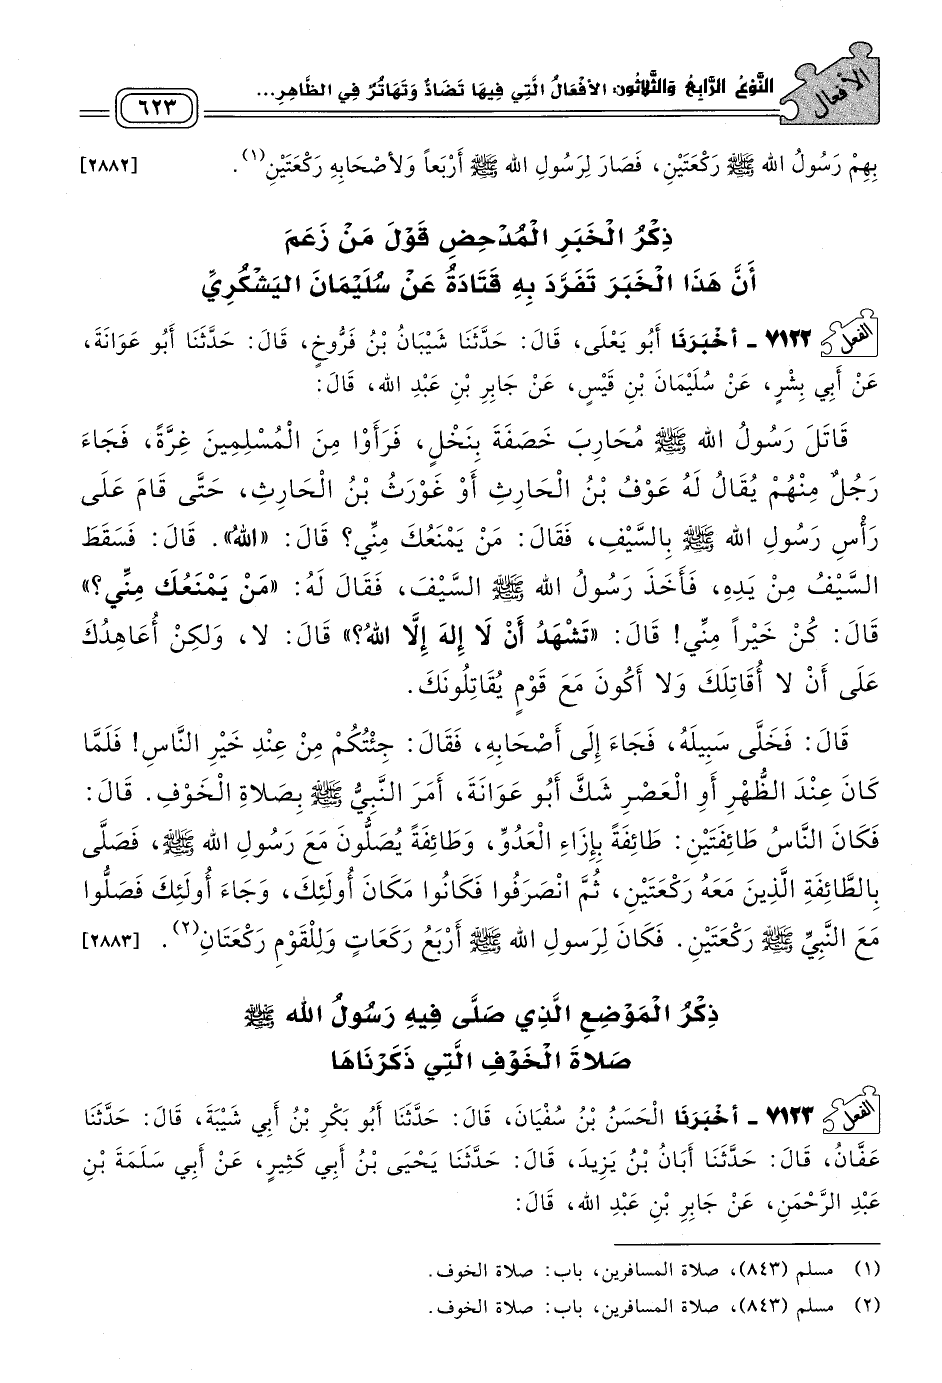 الأفعال
النَّوْعُ الرَّابِعُ وَالثَّلاثُونَ: الأَفْعَالُ الَّتِي فِيهَا تَضَادٌّ وَتَهَاتُرٌ فِي الظَّاهِرِ...
٦٢٣
بِهِمْ رَسُولُ الله ﷺ رَكْعَتَيْنِ، فَصَارَ لِرَسُولِ الله ﷺ أَرْبَعاً وَلأَصْحَابِهِ رَكْعَتَيْنِ(١). [٢٨٨٢]
ذِكْرُ الْخَبَرِ الْمُدْحِضِ قَوْلَ مَنْ زَعَمَ
أَنَّ هَذَا الْخَبَرَ تَفَرَّدَ بِهِ قَتَادَةُ عَنْ سُلَيْمَانَ اليَشْكُرِيِّ
الفعل ٧١٢٢ - أخْبَرَنَا أَبُو يَعْلَى، قَالَ: حَدَّثَنَا شَيْبَانُ بْنُ فَرُّوخٍ، قَالَ: حَدَّثَنَا أَبُو عَوَانَةَ،
عَنْ أَبِي بِشْرٍ، عَنْ سُلَيْمَانَ بْنِ قَيْسٍ، عَنْ جَابِرِ بْنِ عَبْدِ الله، قَالَ:
قَاتَلَ رَسُولُ الله ﷺ مُحَارِبَ خَصَفَةَ بِنَخْلٍ، فَرَأَوْا مِنَ الْمُسْلِمِينَ غِرَّةً، فَجَاءَ
رَجُلٌ مِنْهُمْ يُقَالُ لَهُ عَوْفُ بْنُ الْحَارِثِ أَوْ غَوْرَثُ بْنُ الْحَارِثِ، حَتَّى قَامَ عَلَى
رَأْسِ رَسُولِ الله ﷺ بِالسَّيْفِ، فَقَالَ: مَنْ يَمْنَعُكَ مِنِّي؟ قَالَ: «اللهُ». قَالَ: فَسَقَطَ
السَّيْفُ مِنْ يَدِهِ، فَأَخَذَ رَسُولُ الله ﷺ السَّيْفَ، فَقَالَ لَهُ: «مَنْ يَمْنَعُكَ مِنِّي؟»
قَالَ: كُنْ خَيْراً مِنِّي! قَالَ: «تَشْهَدُ أَنْ لَا إِلهَ إِلَّا اللهُ؟» قَالَ: لا، وَلكِنْ أُعَاهِدُكَ
عَلَى أَنْ لا أُقَاتِلَكَ وَلا أَكُونَ مَعَ قَوْمٍ يُقَاتِلُونَكَ.
قَالَ: فَخَلَّى سَبِيلَهُ، فَجَاءَ إِلَى أَصْحَابِهِ، فَقَالَ: جِئْتُكُمْ مِنْ عِنْدِ خَيْرِ النَّاسِ! فَلَمَّا
كَانَ عِنْدَ الظُّهْرِ أَوِ الْعَصْرِ شَكَّ أَبُو عَوَانَةَ، أَمَرَ النَّبِيُّ ﷺ بِصَلاةِ الْخَوْفِ. قَالَ:
فَكَانَ النَّاسُ طَائِفَتَيْنِ: طَائِفَةً بِإِزَاءِ الْعَدُوِّ، وَطَائِفَةً يُصَلُّونَ مَعَ رَسُولِ الله ﷺ، فَصَلَّى
بِالطَّائِفَةِ الَّذِينَ مَعَهُ رَكْعَتَيْنِ، ثُمَّ انْصَرَفُوا فَكَانُوا مَكَانَ أُولَئِكَ، وَجَاءَ أُولَئِكَ فَصَلُّوا
مَعَ النَّبِيِّ ﷺ رَكْعَتَيْنِ. فَكَانَ لِرَسولِ الله ﷺ أَرْبَعُ رَكَعَاتٍ وَلِلْقَوْمِ رَكْعَتَانِ(٢). [٢٨٨٣]
ذِكْرُ الْمَوْضِعِ الَّذِي صَلَّى فِيهِ رَسُولُ الله ﷺ
صَلاةَ الْخَوْفِ الَّتِي ذَكَرْنَاهَا
الفعل ٧١٢٣ - أخْبَرَنَا الْحَسَنُ بْنُ سُفْيَانَ، قَالَ: حَدَّثَنَا أَبُو بَكْرِ بْنُ أَبِي شَيْبَةَ، قَالَ: حَدَّثَنَا
عَفَّانُ، قَالَ: حَدَّثَنَا أَبَانُ بْنُ يَزِيدَ، قَالَ: حَدَّثَنَا يَحْيَى بْنُ أَبِي كَثِيرٍ، عَنْ أَبِي سَلَمَةَ بْنِ
عَبْدِ الرَّحْمَنِ، عَنْ جَابِرِ بْنِ عَبْدِ الله، قَالَ:
(١) مسلم (٨٤٣)، صلاة المسافرين، باب: صلاة الخوف.
(٢) مسلم (٨٤٣)، صلاة المسافرين، باب: صلاة الخوف.